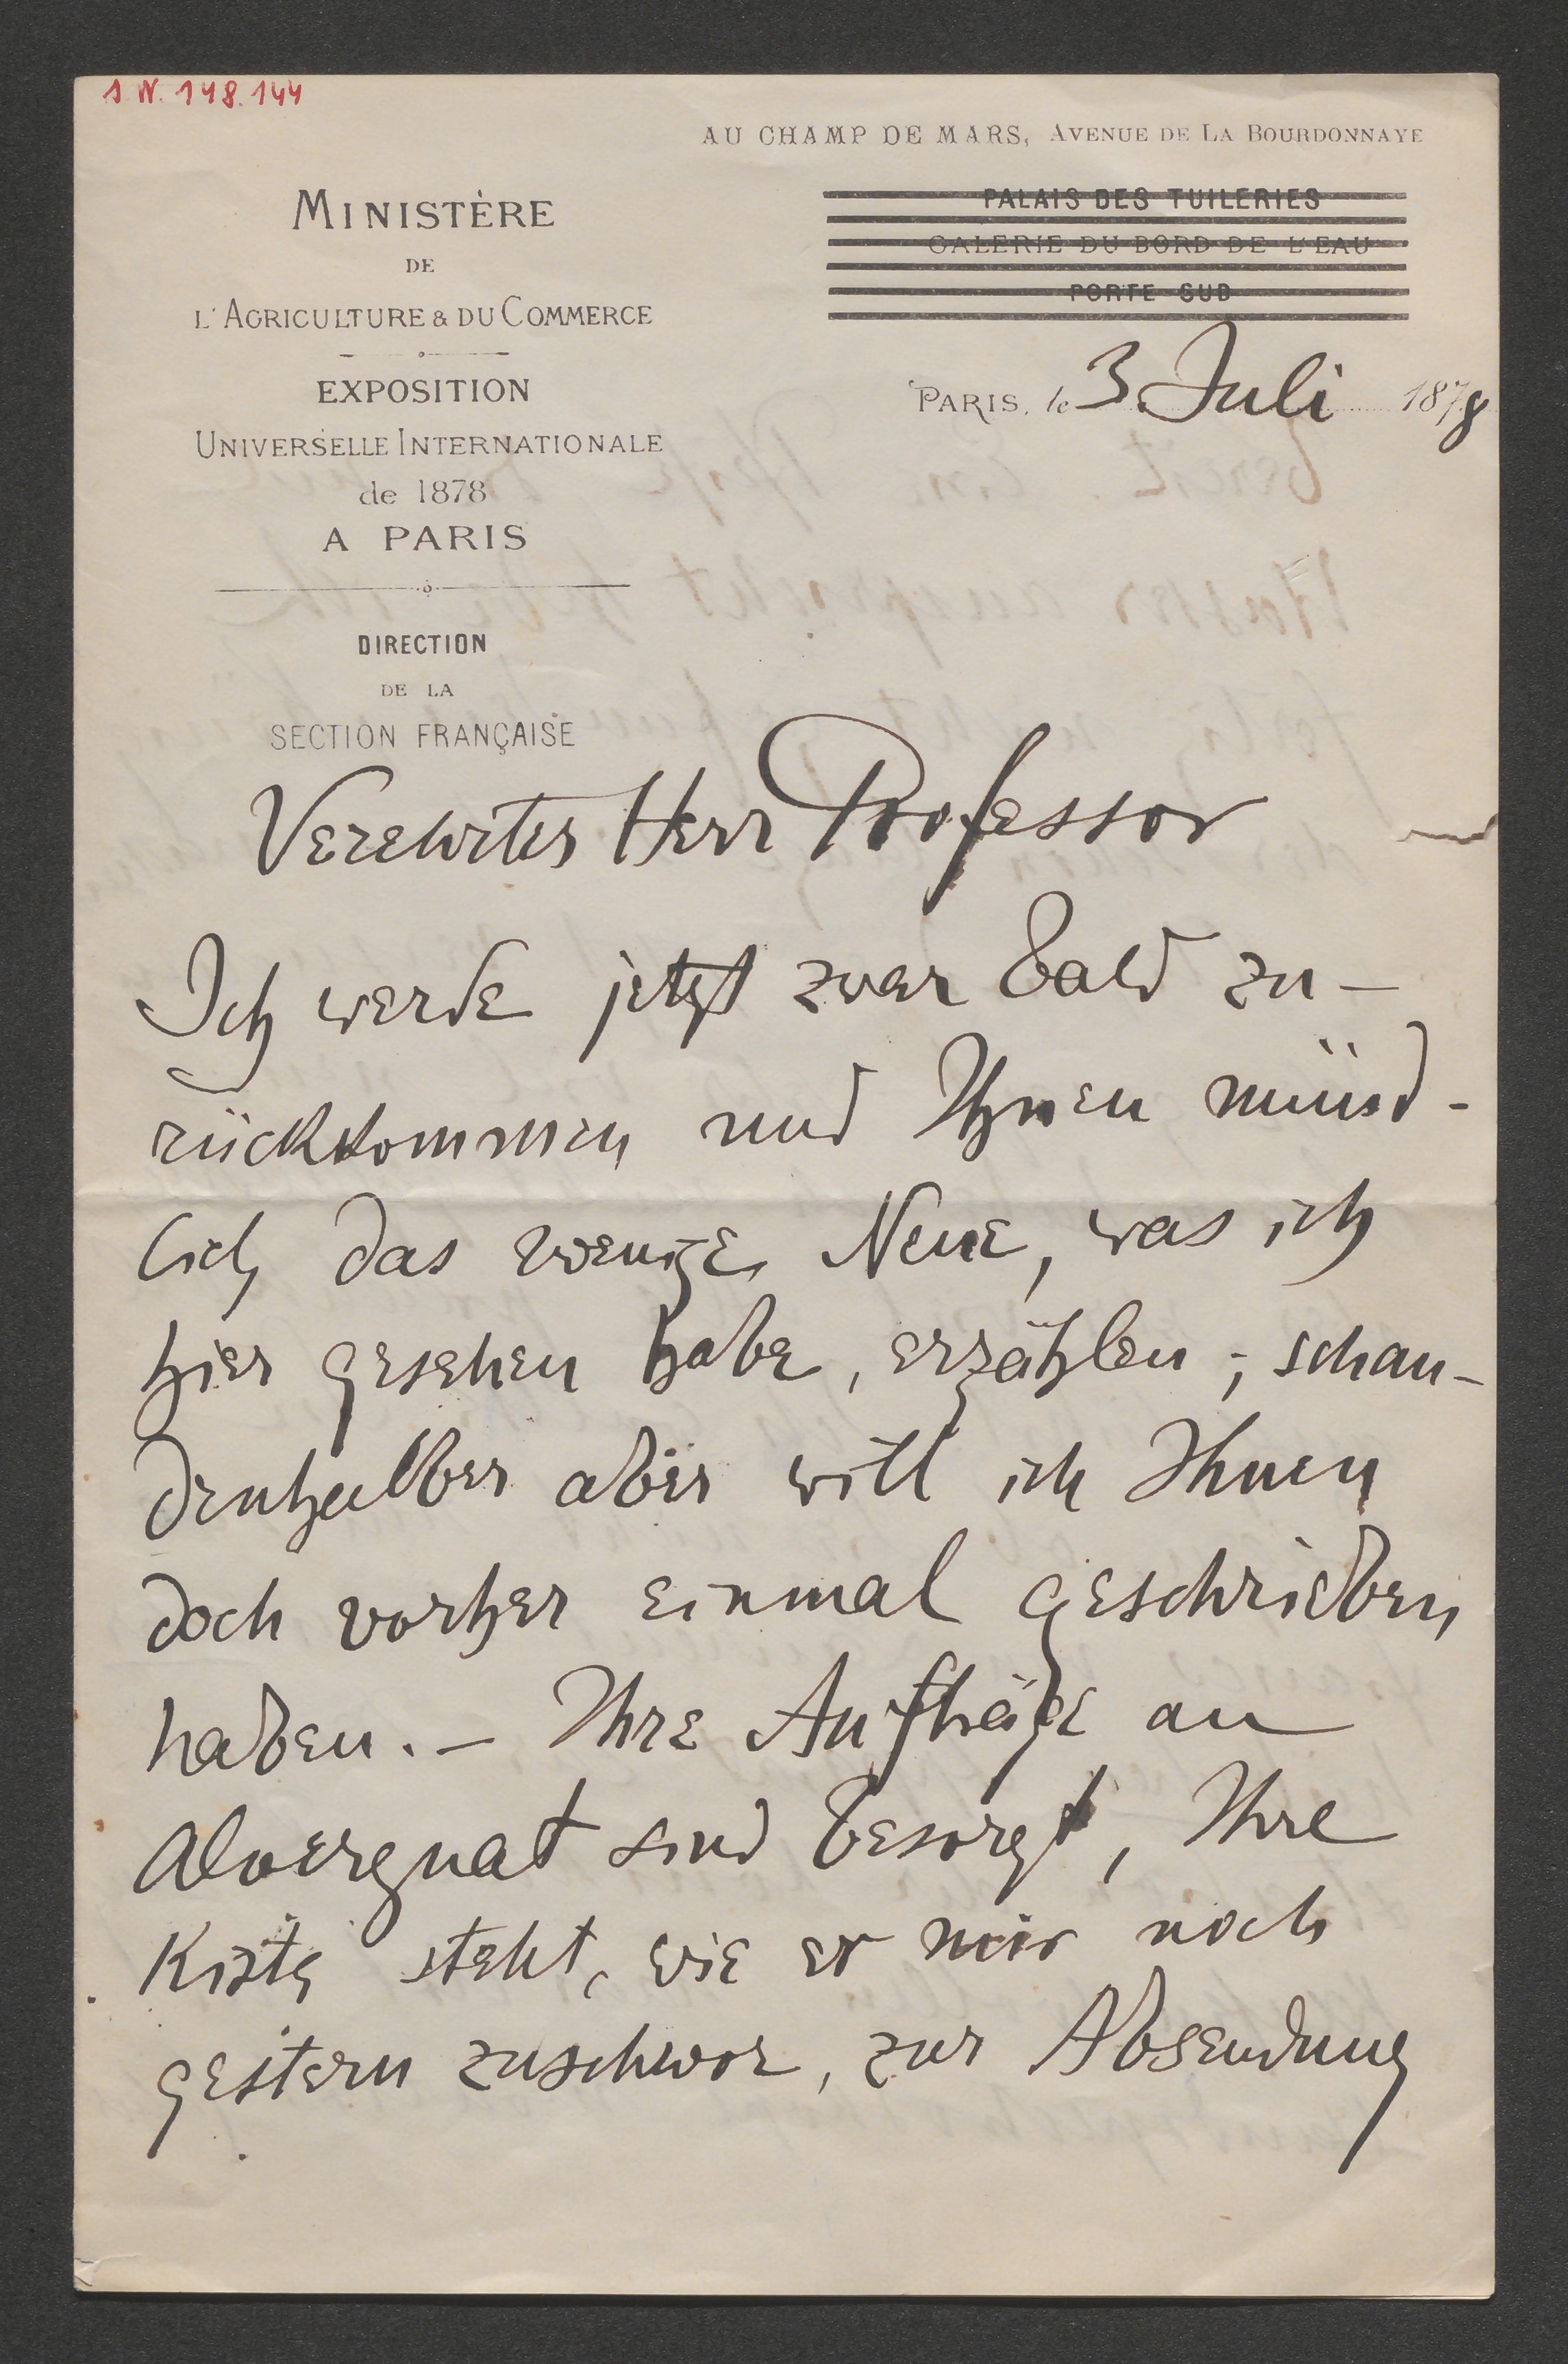 I. N. 148.144
AU CHAMP DE MARS, AVENUE DE LA BOURDONNAYE
MINISTÈRE
DE
L'AGRICULTURE & DU COMMERCE
EXPOSITION
UNIVERSELLE INTERNATIONALE
de 1878
A PARIS
DIRECTION
DE LA
SECTION FRANÇAISE
PALAIS DES TUILERIES
GALERIE DU BORD DE L'EAU
PORTE SUD
PARIS, le 3. Juli 1878
Verehrter Herr Professor
Ich werde jetzt zwar bald zu-
rückkommen und Ihnen münd-
lich das wenige Neue, was ich
hier gesehen habe, erzählen; schan-
denhalber aber will ich Ihnen
doch vorher einmal geschrieben
haben. – Ihre Aufträge an
Alvergnat sind besorgt, Ihre
Kiste steht, wie er mir noch
gestern zuschwor, zur Absendung